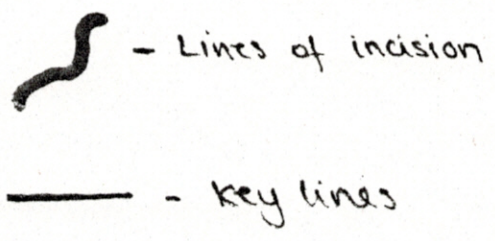 - Lines of incision
- key lines